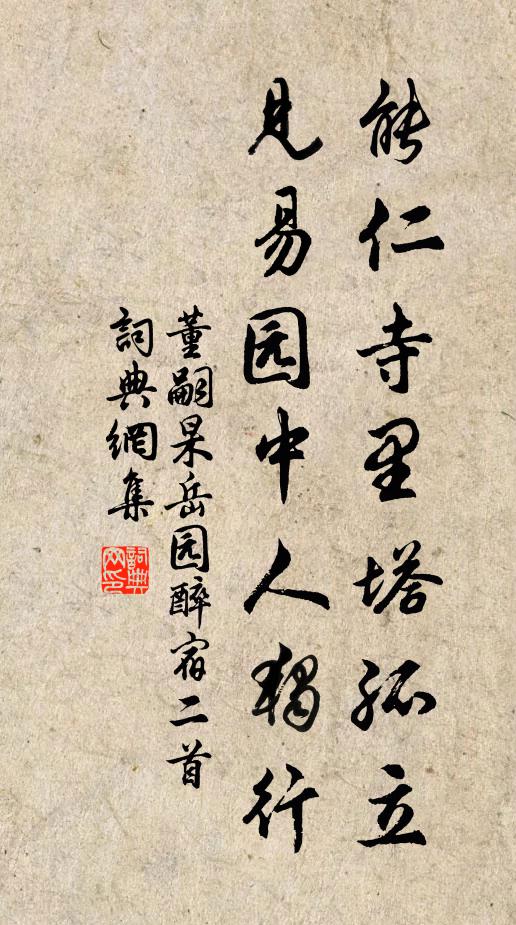 能仁寺里塔孤立
见易园中人独行
董嗣杲岳园醉宿二首
詞典網集
詞典網印